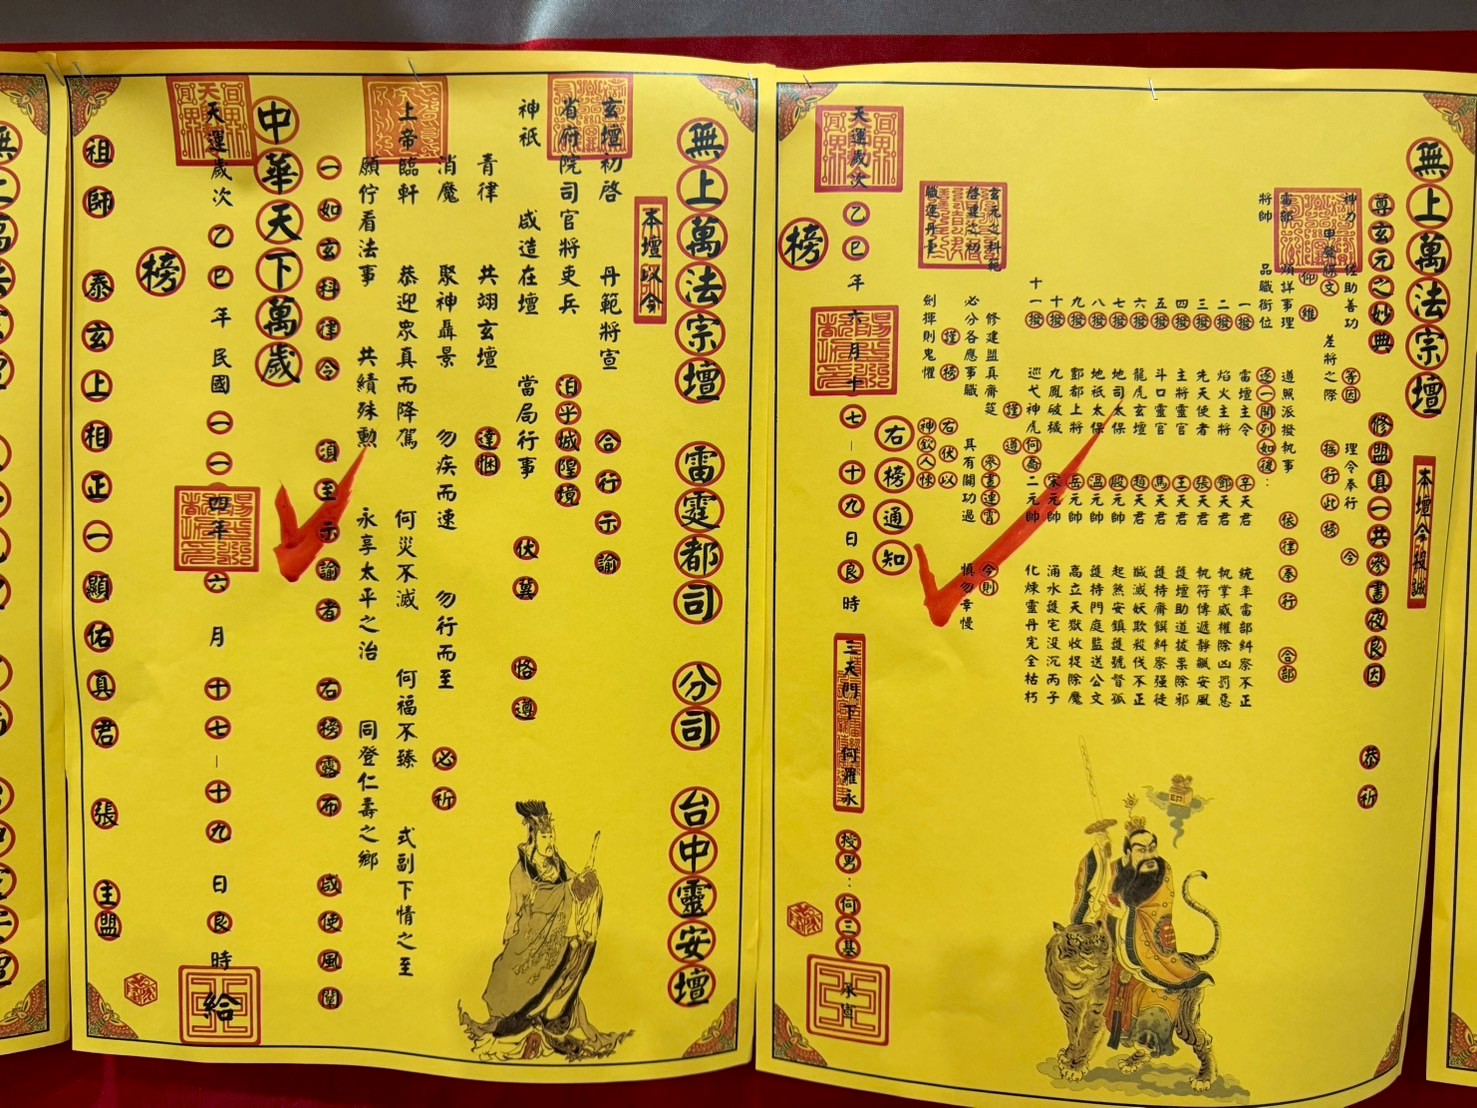 無上萬法宗壇
尊玄元之妙典 修盟真一共參書夜良因 恭祈
本壇今投誠
神力 佐助善功 等因 理令奉行 今
申發牒文 差將之際 揺行此榜
仰 維
雷部 煩詳事理 依律奉行 合部
將帥 品職銜位 遵照派撥執事 逐一開列如後：
一撥 雷壇主令 辛天君 統率雷部糾察不正
二撥 焰火主將 鄧天君 執掌威權除凶罰惡
三撥 先天使者 張天君 執符傳遞靜飆安風
四撥 主將靈官 王天君 護壇助道拔祟除邪
五撥 斗口靈官 馬天君 護持齋饌糾察強徒
六撥 龍虎玄壇 趙天君 馘滅妖欺殺伐不正
七撥 地司太保 殷元帥 起煞安鎮護號督孤
八撥 地祇太保 溫元帥 護持門庭監送公文
九撥 酆都上將 岳元帥 高立天獄收捉除魔
十撥 九鳳破穢 宋元帥 涌水護宅沒沉丙子
十一撥 巡弋神虎 何喬二元帥 化煉靈丹完全枯朽
謹遵
玄元之科範 修建盟真齋筵 參晝連宵 今則
啓建之初 必分各應事職 具有關功過 慎勿幸慢
謹榜
職運丹衷 劍揮則鬼懼 神欽人悚
右伏以
右榜通知
天運歲次 乙巳年 六月十七－十九日良時 三天門下 何羅永 授男：何三基 承宣
榜
無上萬法宗壇 雷霆都司 分司 台中靈安壇
本壇以今
玄壇初啓 丹範將宣 合行示諭
省府院司官將吏兵 泊乎城隍境
神祇 咸造在壇 當局行事 伏冀 恪遵
青律 共翊玄壇 達悃
消魔 聚神聶景 勿疾而速 勿行而至 必祈
上帝臨軒 恭迎眾真而降駕 何災不滅 何福不臻 式副下情之至
願佇看法事 共績殊勳 永享太平之治 同登仁壽之鄉
一如玄科律令 須至示諭者 右榜露布 咸使風聞
中華天下萬歲
天運歲次 乙巳年 民國一一四年六月十七－十九日良時 給
榜
祖師 泰玄上相正一顯佑真君 張 主盟